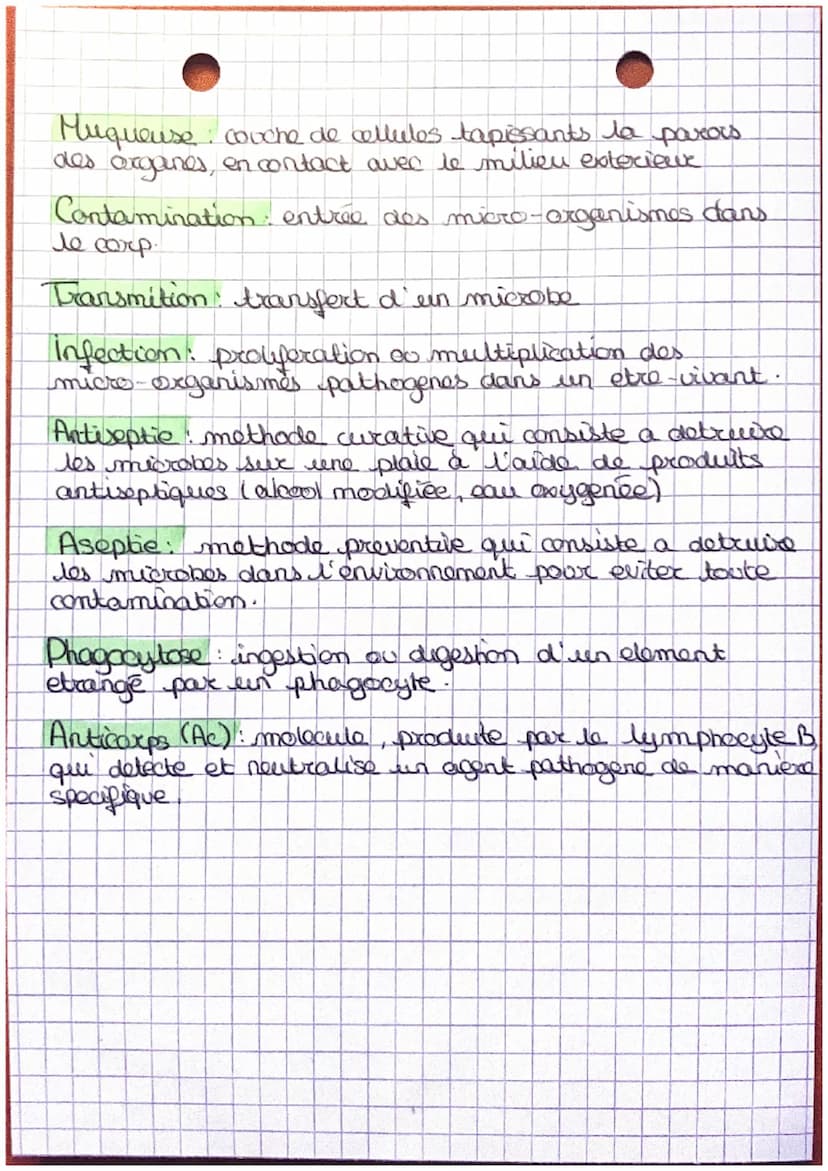 Muqueuse : couche de cellules tapissants la parois
des organes, en contact avec le milieu exterieur
Contamination : entrée des micro-organismes dans
le corp.
Transmition : transfert d'un microbe
infection : proliferation ou multiplication des
micro-organismes pathogenes dans un etre-vivant.
Antiseptie : methode curative qui consiste a detruire
les microbes sur une plaie à l'aide de produits
antiseptiques (alcool modifiée, eau oxygenée)
Aseptie : methode preventive qui consiste a detruire
les microbes dans l'environnement pour eviter toute
contamination.
Phagocytose : ingestion ou digestion d'un element
etrangé par un phagocyte.
Anticorps (Ac) : molecule, produite par le lymphocyte B,
qui detecte et neutralise un agent pathogene de maniere
specifique.